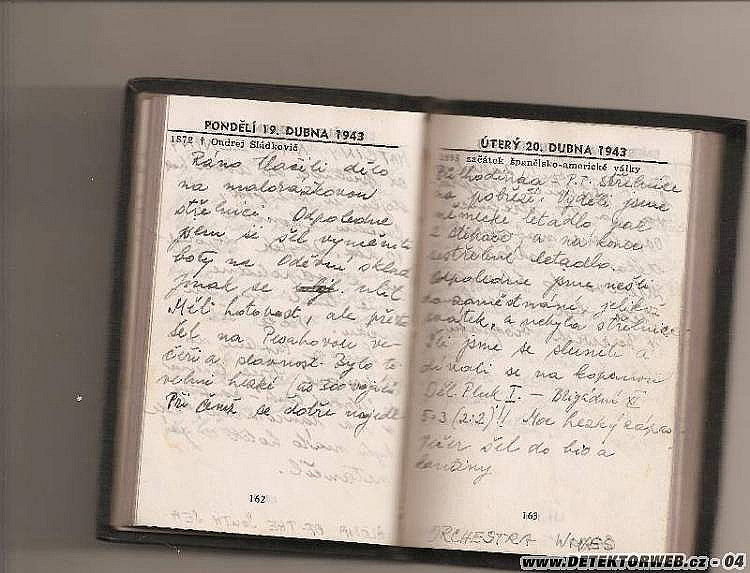 PONDĚLÍ 19. DUBNA 1943
1872 † Ondrej Sládkovič
Ráno tlačili dělo
na malorážkovou
střelnici. Odpoledne
jsem si šel vyměnit
boty na Oděvní sklad
Jinak se ulil.
Měli hotovost, ale přesto
šel na Pesahovou ve-
čeři a slavnost. Bylo to
velmi hezké (as 300 vojáků)
Při čemž se dobře najedl
162
ALOMA OF THE SOUTH SEA
ÚTERÝ 20. DUBNA 1943
1898 začátek španělsko-americké války
hodinaa - P.T. Střelnice
na pobřeží. Viděli jsme
německé letadlo, pak
2 a na konec
sestřelené letadlo.
Odpoledne jsme nešli
do zaměstnání, jelikož
svátek, a nebyla střelnice.
Šli jsme se slunit a
dívali se na kopanou
Děl. Pluk I. - Brigádní XI
5:3 (2:2)!! Moc hezký zápas.
Večer šel do bia a
kantýny
163
ORCHESTRA WIVES
WWW.DETEKTORWEB.cz - 04